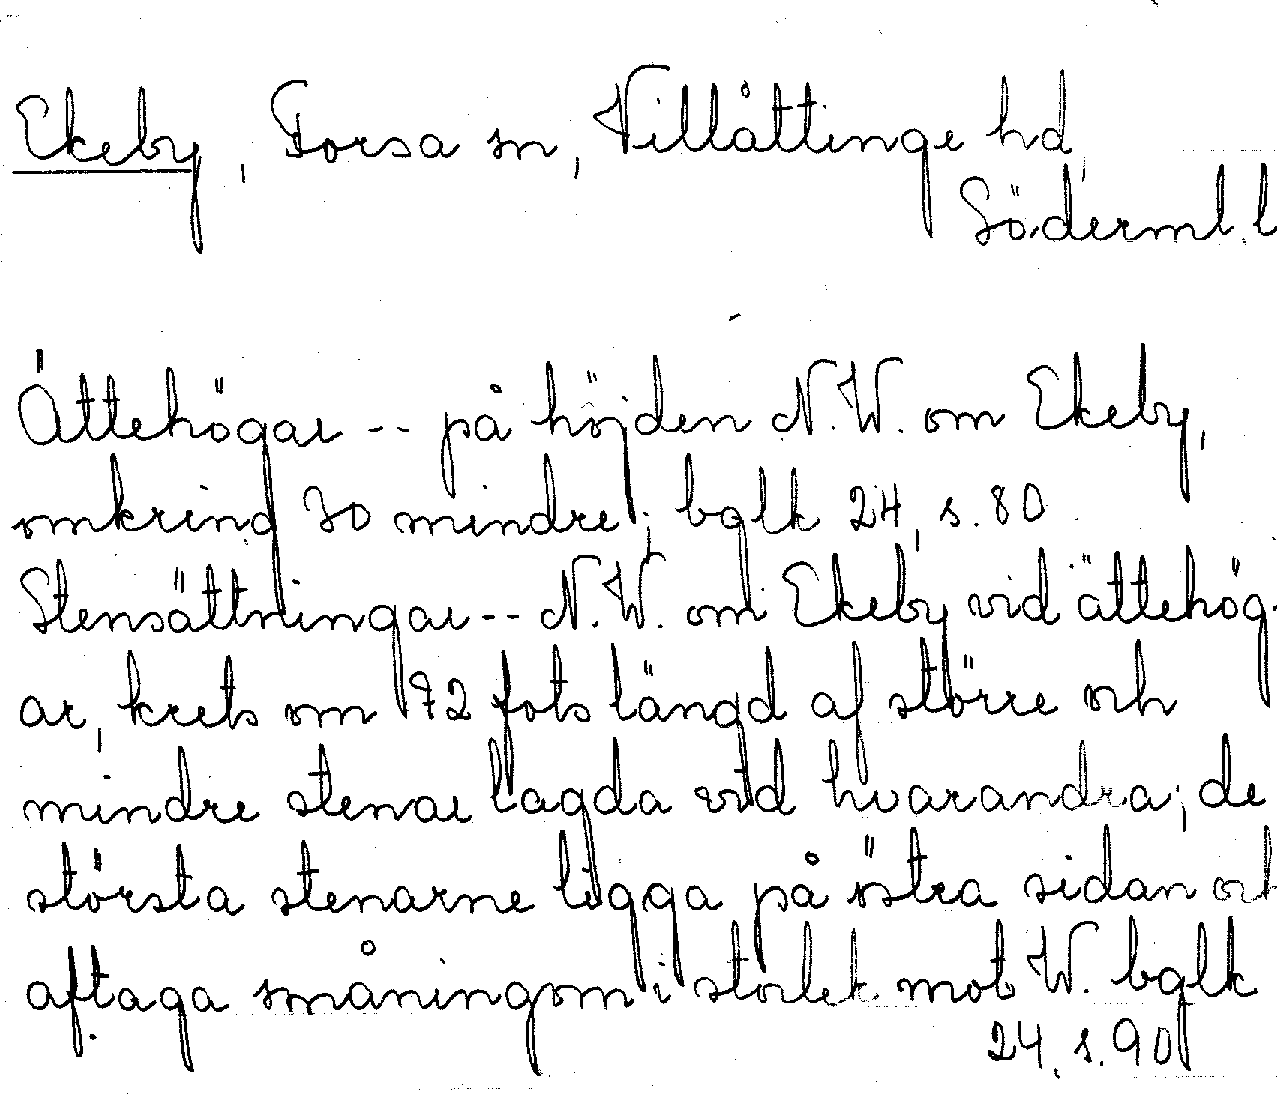 Ekeby, Forsa sn, Villåttinge hd,
Söderml. l
Ättehögar -- på höjden N.W. om Ekeby,
omkring 30 mindre; bqlk 24, s. 80
Stensättningar -- N.W. om Ekeby vid ättehög-
ar, krets om 72 fots längd af större och
mindre stenar lagda vid hvarandra; de
största stenarne ligga på östra sidan och
aftaga småningom i storlek mot W. bqlk
24, s. 90